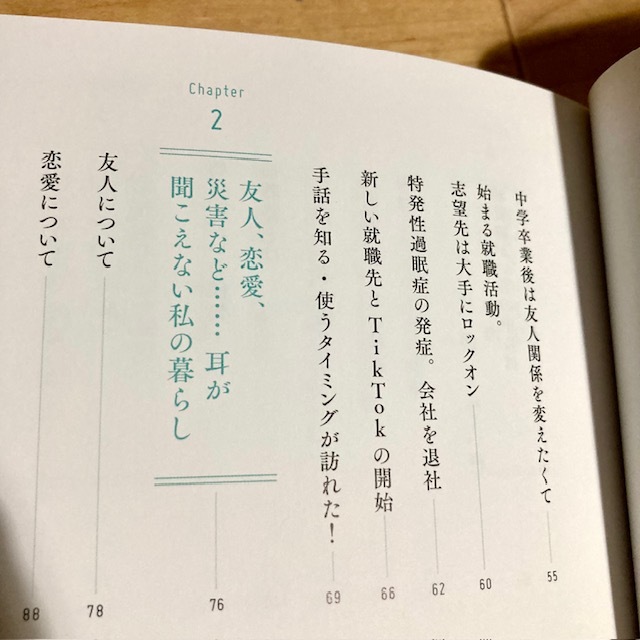 中学卒業後は友人関係を変えたくて
55
始まる就職活動。
志望先は大手にロックオン
60
特発性過眠症の発症。会社を退社
62
新しい就職先とTikTokの開始
66
手話を知る・使うタイミングが訪れた！
69
Chapter
2
友人、恋愛、
災害など……耳が
聞こえない私の暮らし
76
友人について
78
恋愛について
88